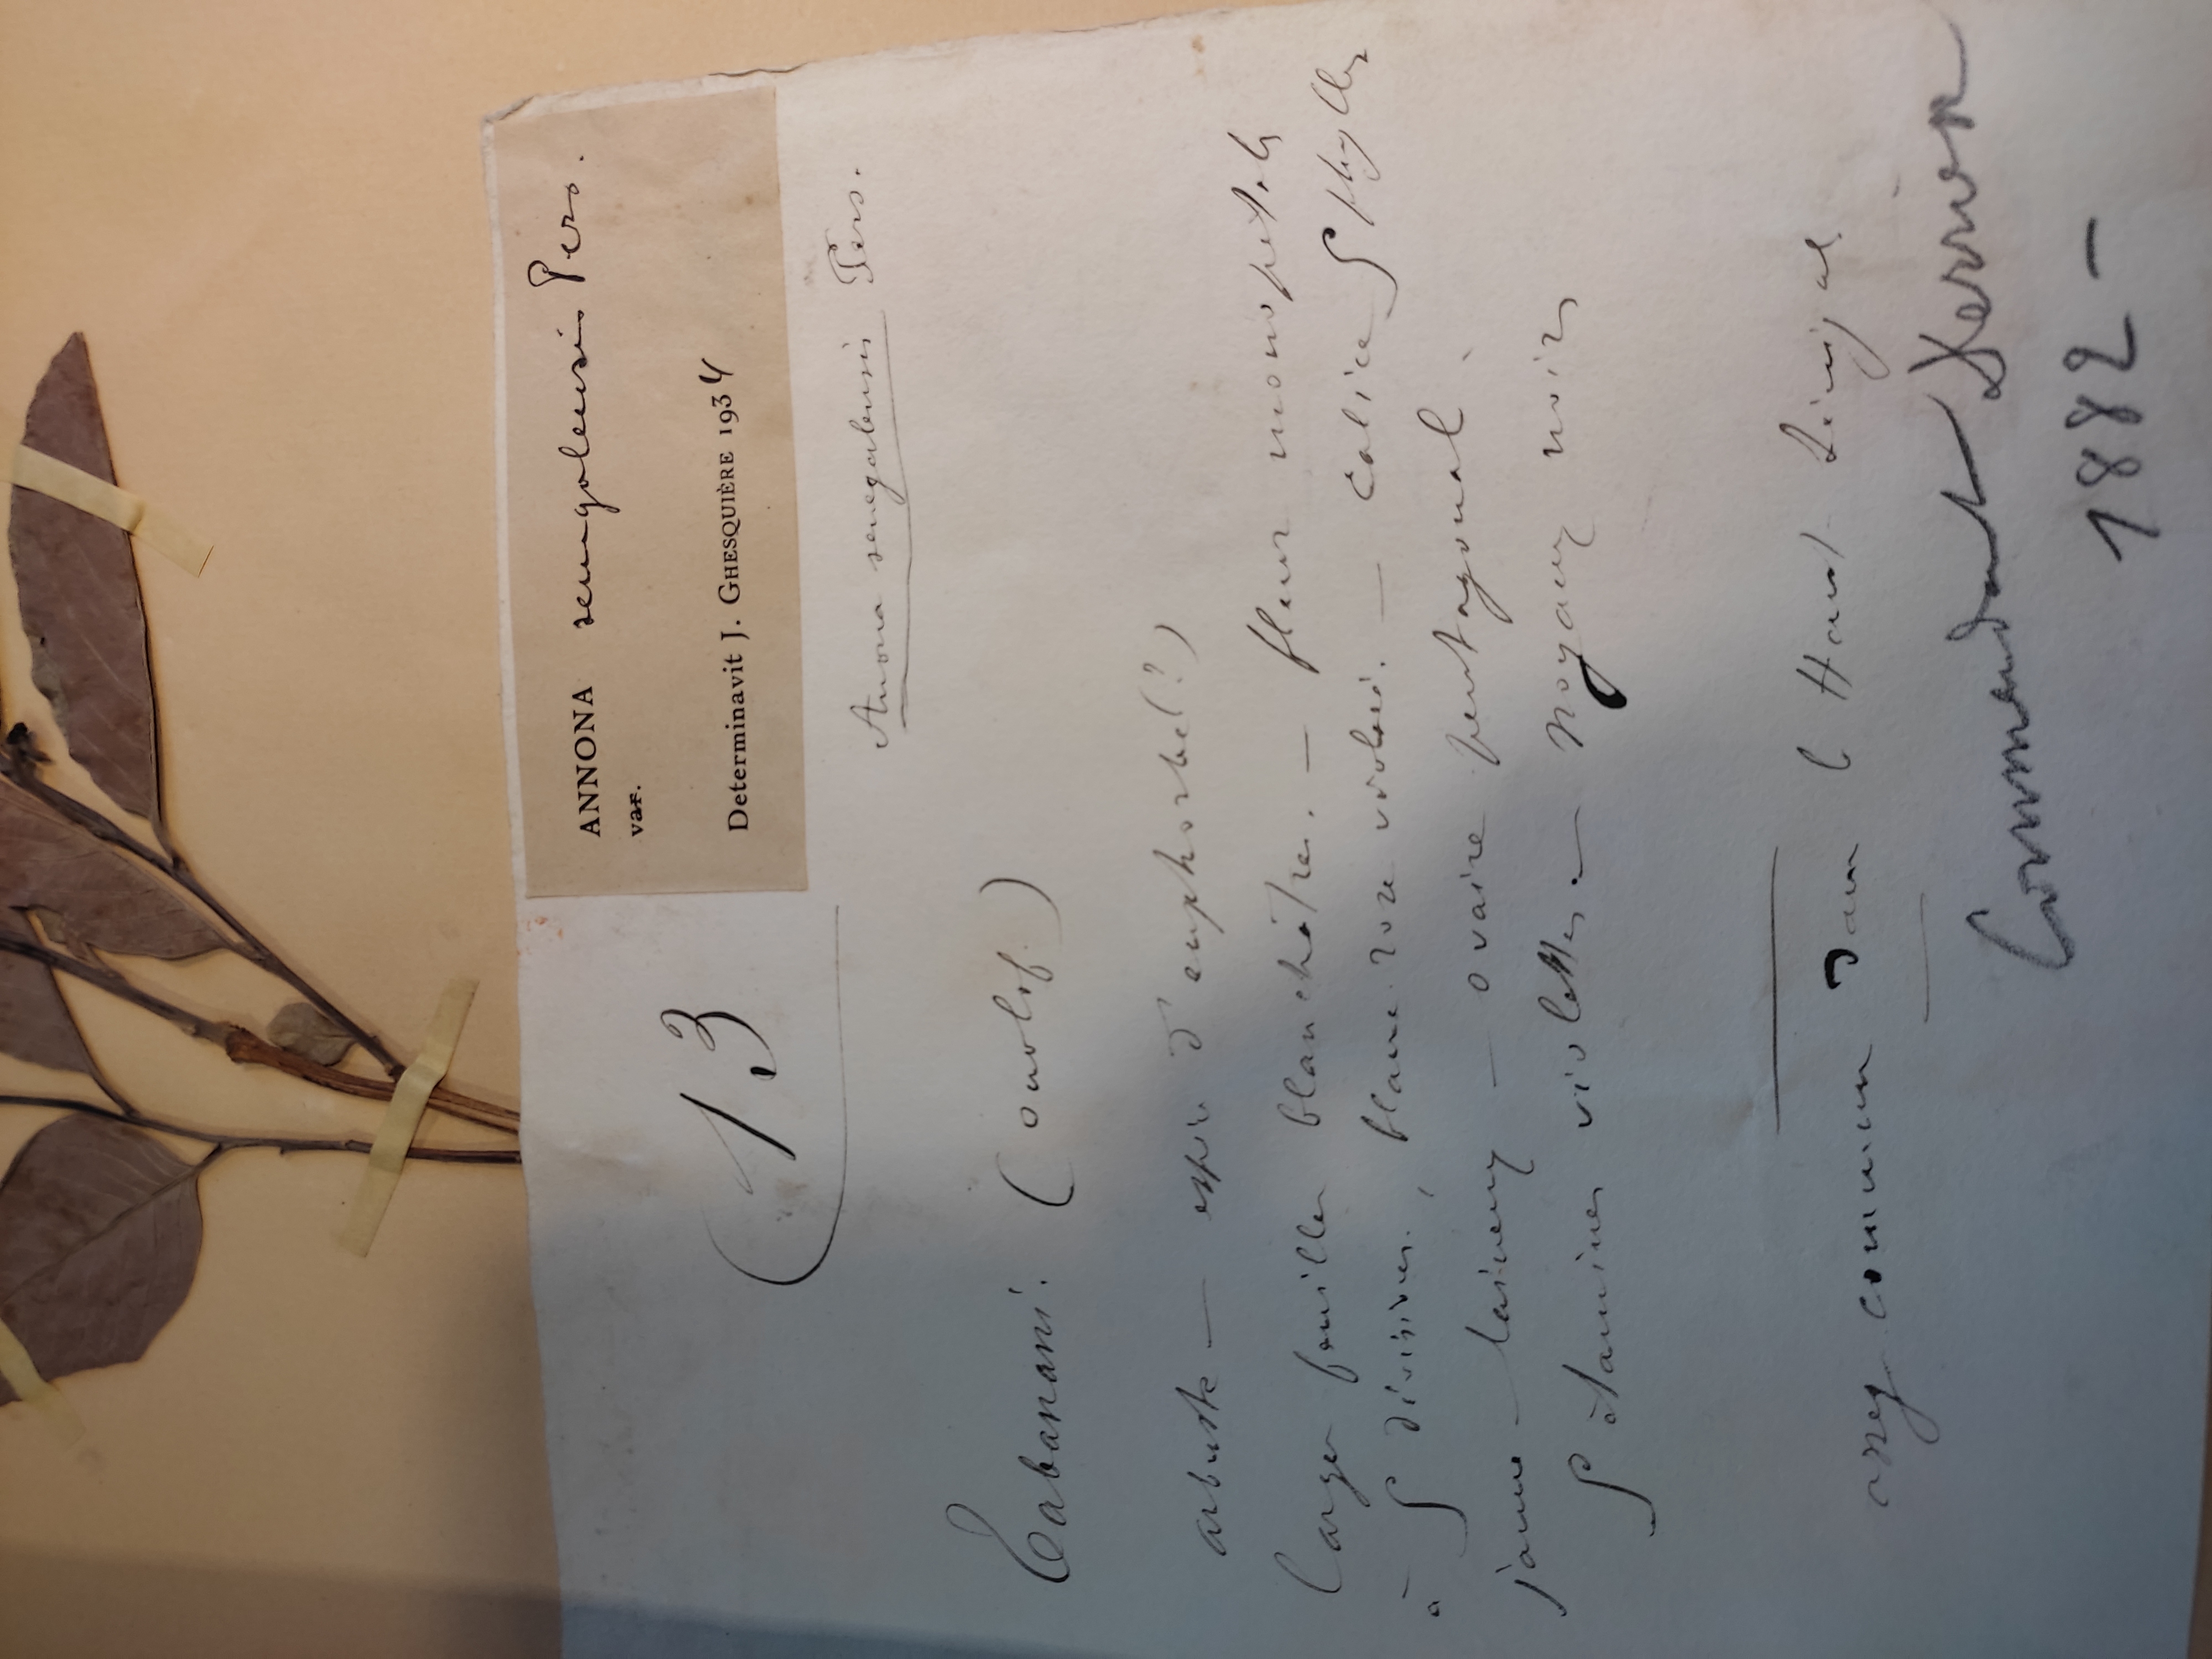 ANNONA senegalensis Pers.
var.
Determinavit J. GHESQUIÈRE 1934
13
Anona senegalensis Pers.
Cabanani. (ouolof.)
arbuste — espèce d'euphorbe (?)
larges feuilles blanchâtres. — fleur monopétale
à 5 divisions, blanc rose violacé. — calice 5 phylles
jaune — laineux — ovaire pentagonal.
5 étamines violettes. — noyaux noirs
assez commun dans l Haut Sénégal
Commandant Derrien
1882 -